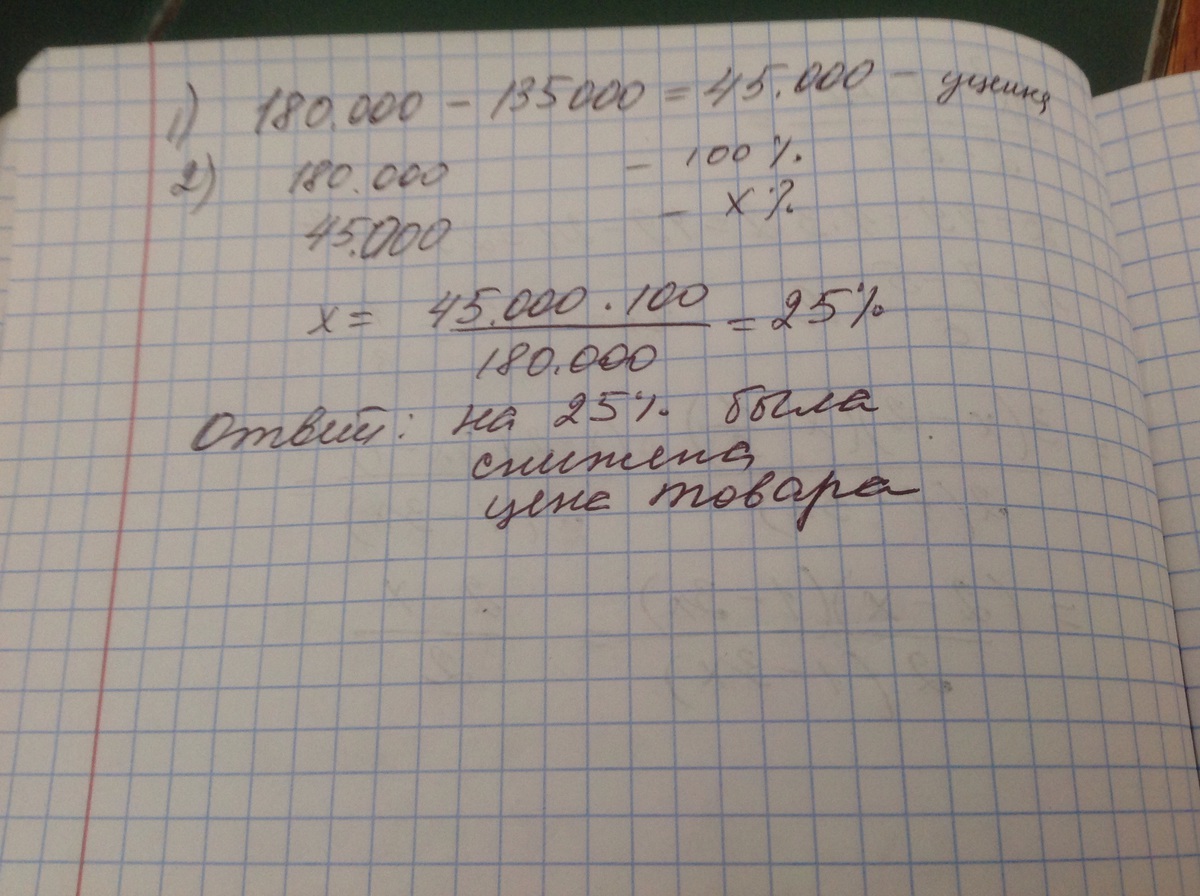 1) 180.000 - 135000 = 45.000 - уценка
2) 180.000 - 100%
45.000 - x%
x = 45.000 · 100 / 180.000 = 25%
Ответ: на 25% была
снижена
цена товара